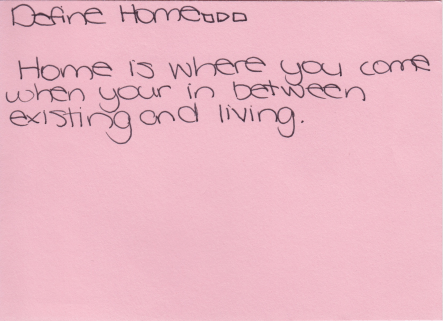 Define Home...
Home is where you come
when your in between
existing and living.